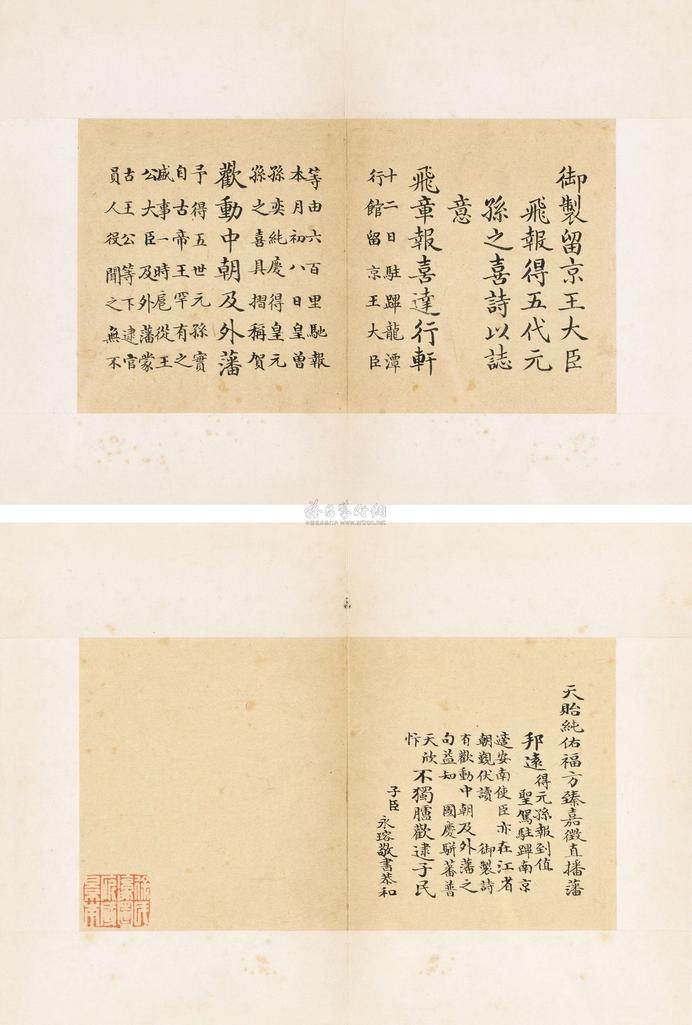 御製留京王大臣
飛報得五代元
孫之喜詩以誌
意
飛章報喜達行軒
十二日駐蹕龍潭
行館留京王大臣
等由六百里馳報
本月初八日皇曾
孫奕純慶得皇元
孫之喜具摺稱賀
歡動中朝及外藩
予得五世元孫實
自古帝王罕有之
盛事一時扈從王
公大臣及外藩蒙
古王公等下逮官
員人役聞之無不
天貽純佑福方臻嘉徵直播藩
邦遠
得元孫報到值
聖駕駐蹕南京
適安南使臣亦在江省
朝覲伏讀御製詩
有歡動中朝及外藩之
句益知國慶駢蕃普
天欣
忭
不獨臚歡逮子民
子臣永瑢敬書恭和
www.artron.net